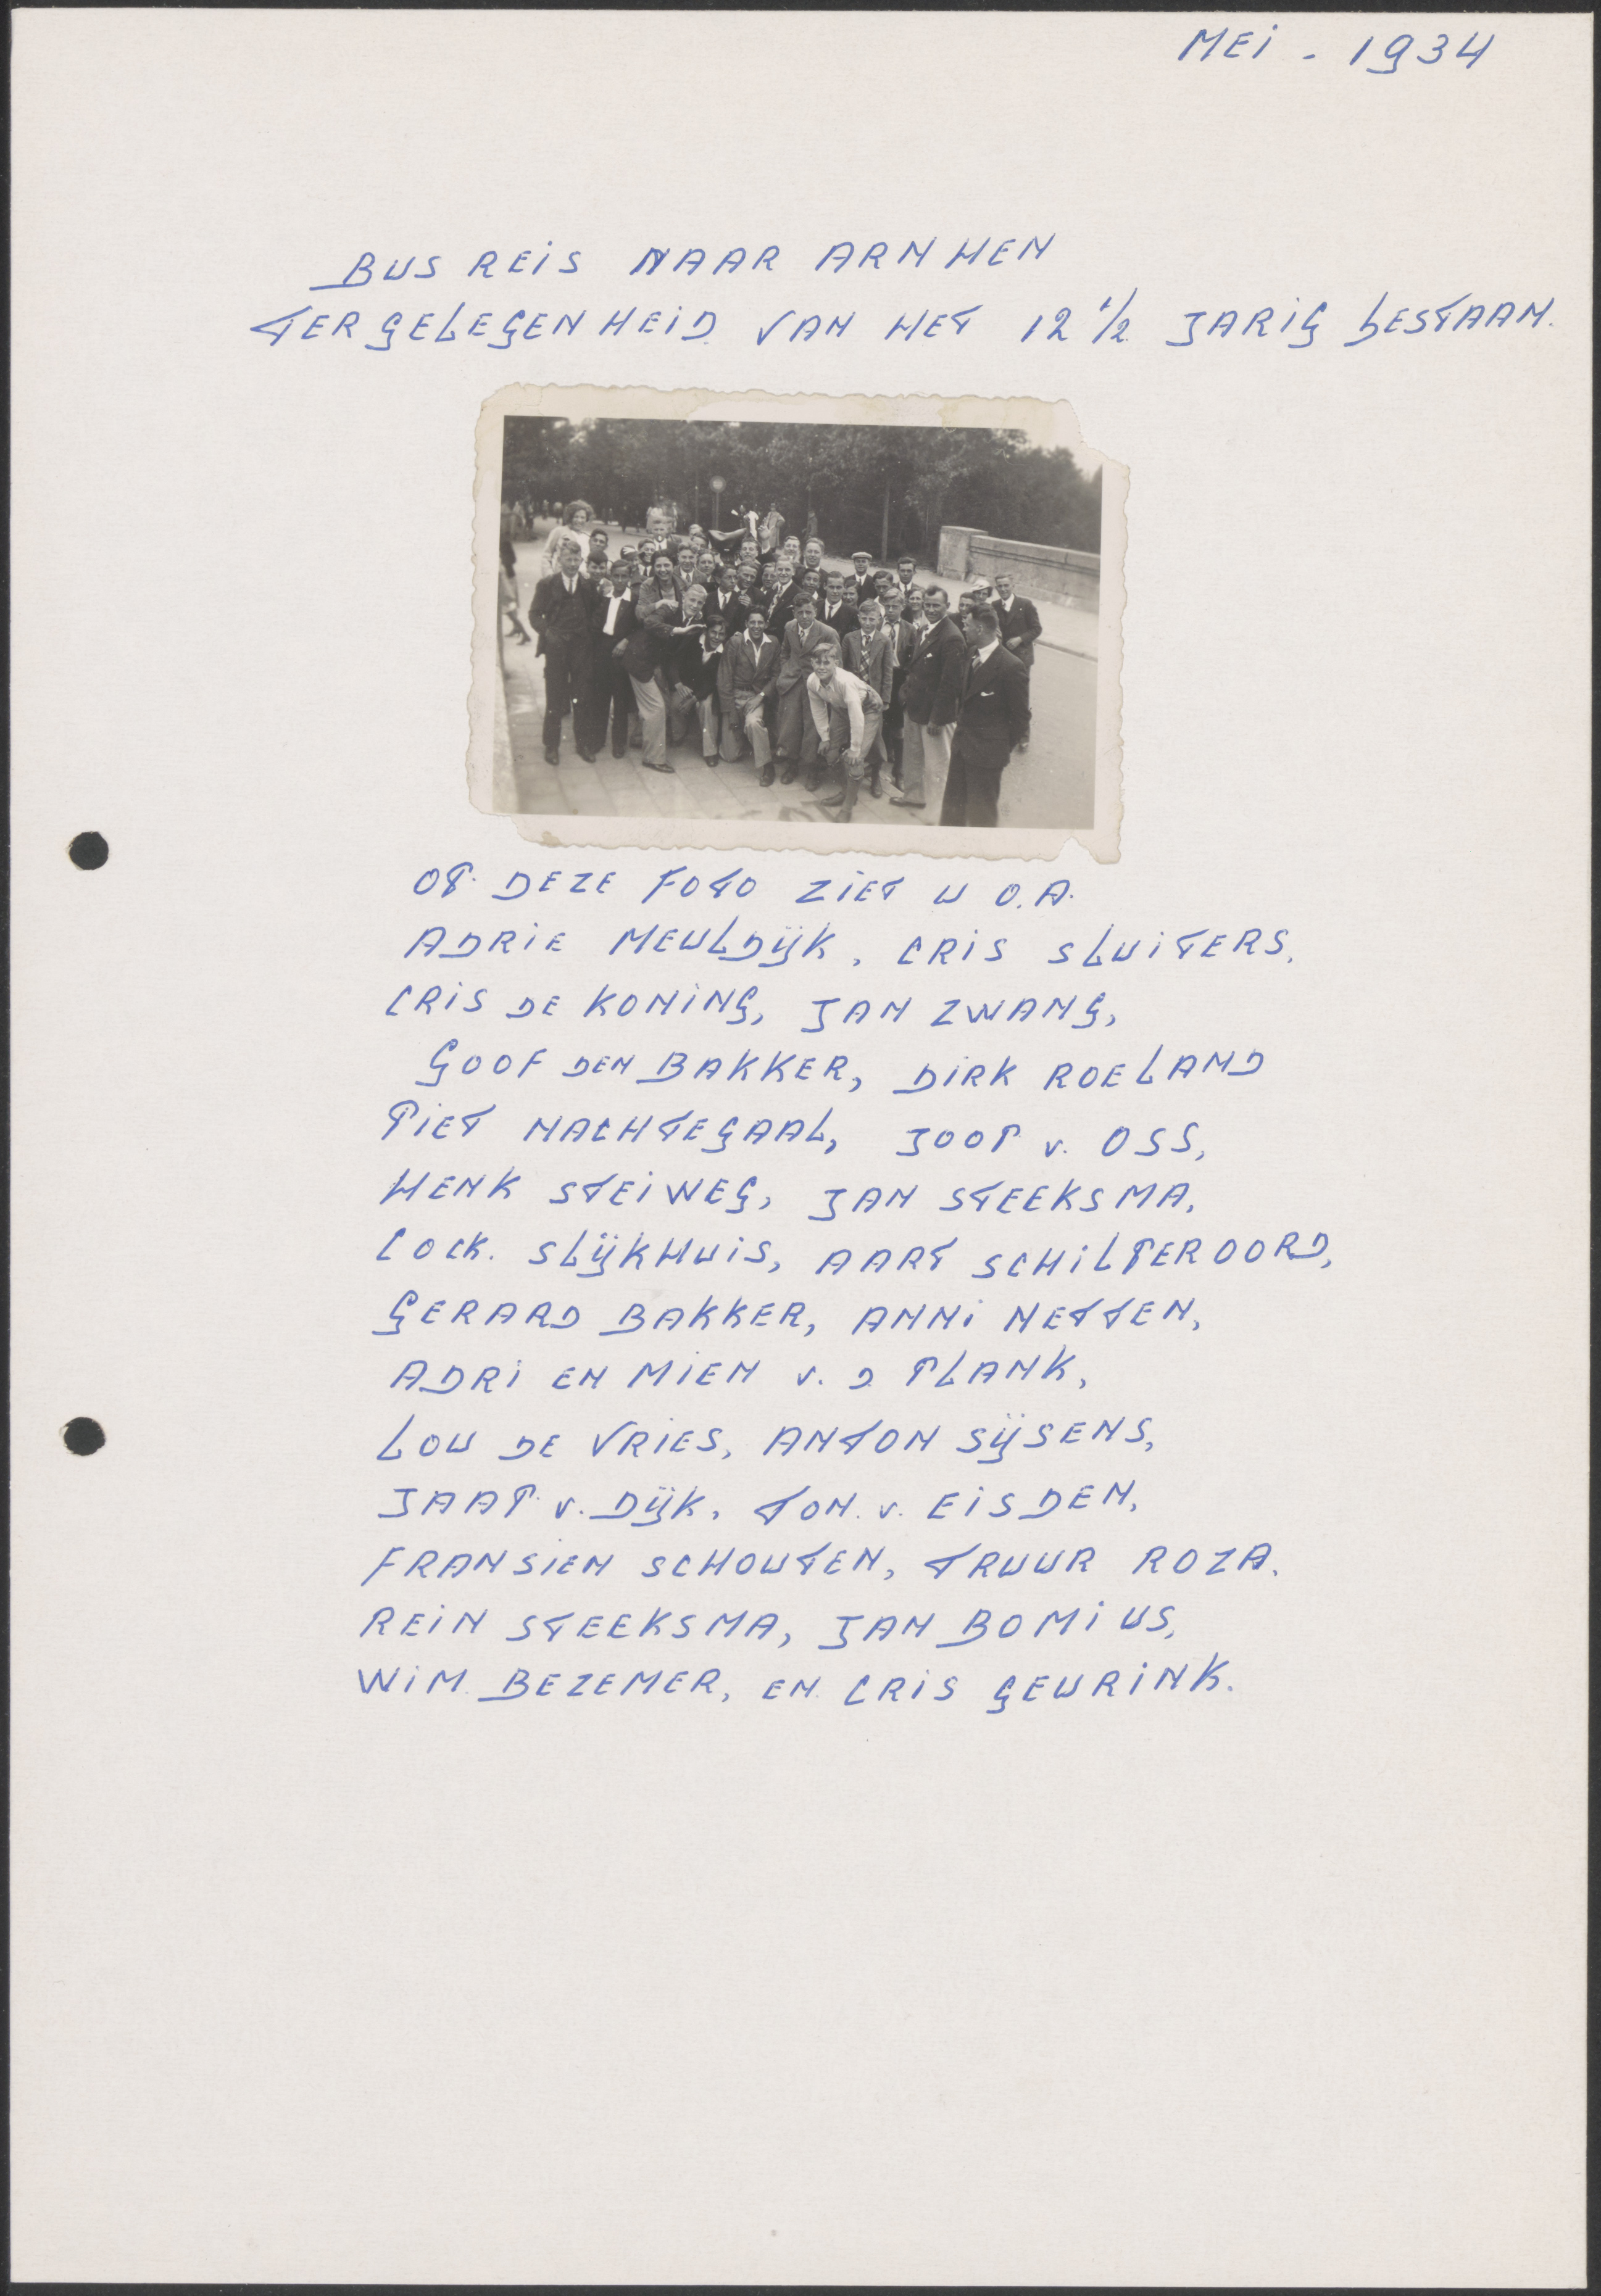 MEi - 1934
BUS REiS NAAR ARNHEN
TER GELEGENHEiD VAN HET 12 1/2 JARiG bESTAAN.
OP DEZE FOTO ZiET U O.A.
ADRiE MEULDijK, CRiS SLUiTERS,
CRiS DE KONiNG, JAN ZWANG,
GOOF DEN BAKKER, DiRK ROELAND
PiET NACHTEGAAL, JOOP v. OSS,
HENK STEiWEG, JAN STEEKSMA,
COCK. SLijKHUiS, AART SCHiLPEROORD,
GERARD BAKKER, ANNi NETTEN,
ADRi EN MiEN v. D PLANK,
LOU DE VRiES, ANTON SijSENS,
JAAP v. DijK, TON. v. EiSDEN,
FRANSiEN SCHOUTEN, TRUUR ROZA.
REiN STEEKSMA, JAN BOMiUS,
WiM BEZEMER, EN CRiS GEURiNK.